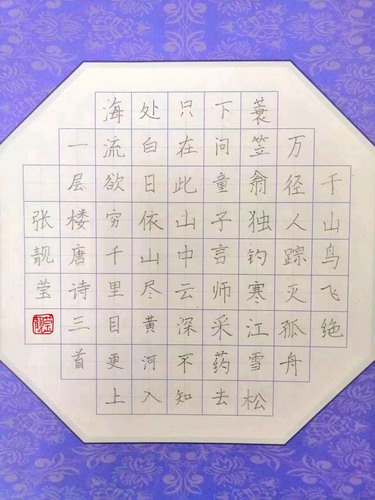 千山鸟飞绝
万径人踪灭孤舟
蓑笠翁独钓寒江雪松
下问童子言师采药去
只在此山中云深不知
处白日依山尽黄河入
海流欲穷千里目更上
一层楼唐诗三首
张靓莹